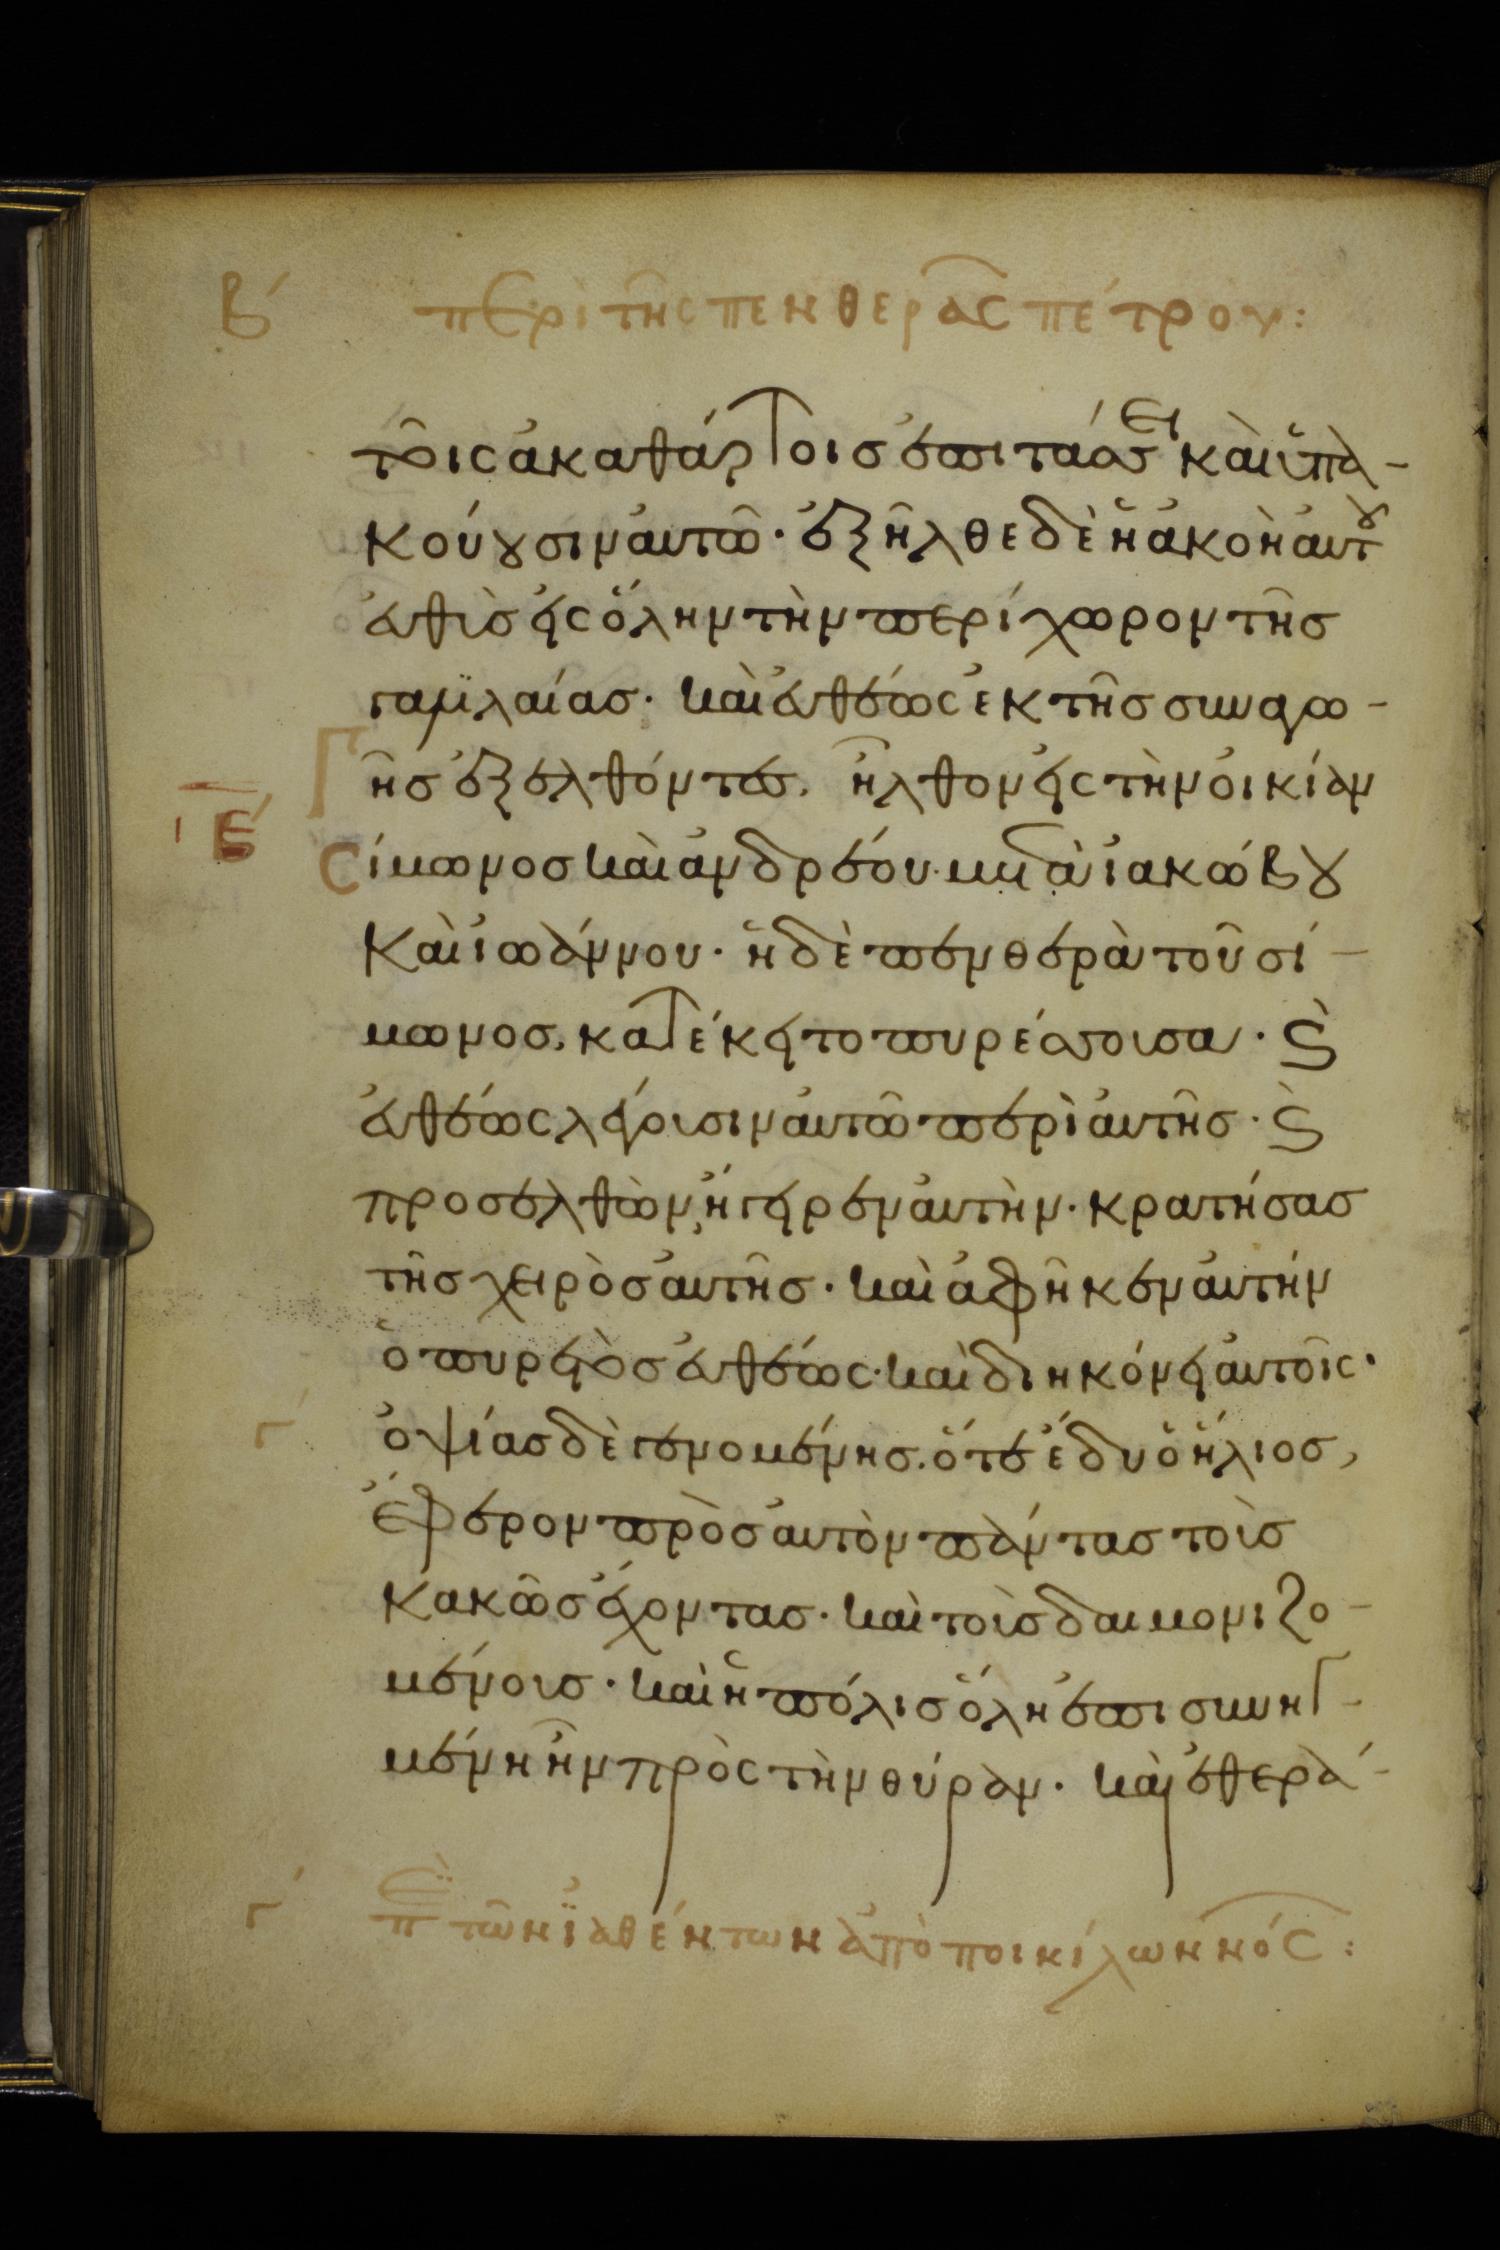 β´ περὶ τῆς πενθερᾶς πέτρου:
τοῖς ἀκαθάρτοις ἐπιτάσσει καὶ ὑπα-
κούουσιν αὐτῶ· ἐξῆλθε δὲ ἡ ἀκοὴ αὐτοῦ
εὐθὺς εἰς ὅλην τὴν περίχωρον τῆς
γαλιλαίας· καὶ εὐθέως ἐκ τῆς συναγω-
γῆς ἐξελθόντες, ἦλθον εἰς τὴν οἰκίαν
ιε´ σίμωνος καὶ ἀνδρέου· μετὰ ἰακώβου
καὶ ἰωάννου· ἡ δὲ πενθερὰ τοῦ σί-
μωνος, κατέκειτο πυρέσσουσα· ϗ
εὐθέως λέγουσιν αὐτῶ περὶ αὐτῆς· ϗ
προσελθὼν, ἤγειρεν αὐτὴν· κρατήσας
τῆς χειρὸς αὐτῆς· καὶ ἀφῆκεν αὐτήν
ὁ πυρετὸς εὐθέως· καὶ διηκόνει αὐτοῖς·
γ´ ὀψίας δὲ γενομένης. ὅτε ἔδυ ὁ ἥλιος,
ἔφερον πρὸς αὐτὸν πάντας τοὺς
κακῶς ἔχοντας· καὶ τοὺς δαιμονιζο-
μένους· καὶ ἡ πόλις ὅλη ἐπισυνηγ-
μένη ἦν πρὸς τὴν θύραν· καὶ ἐθερά-
γ´ πε τῶν ἰαθέντων ἀπὸ ποικίλων νόσ: